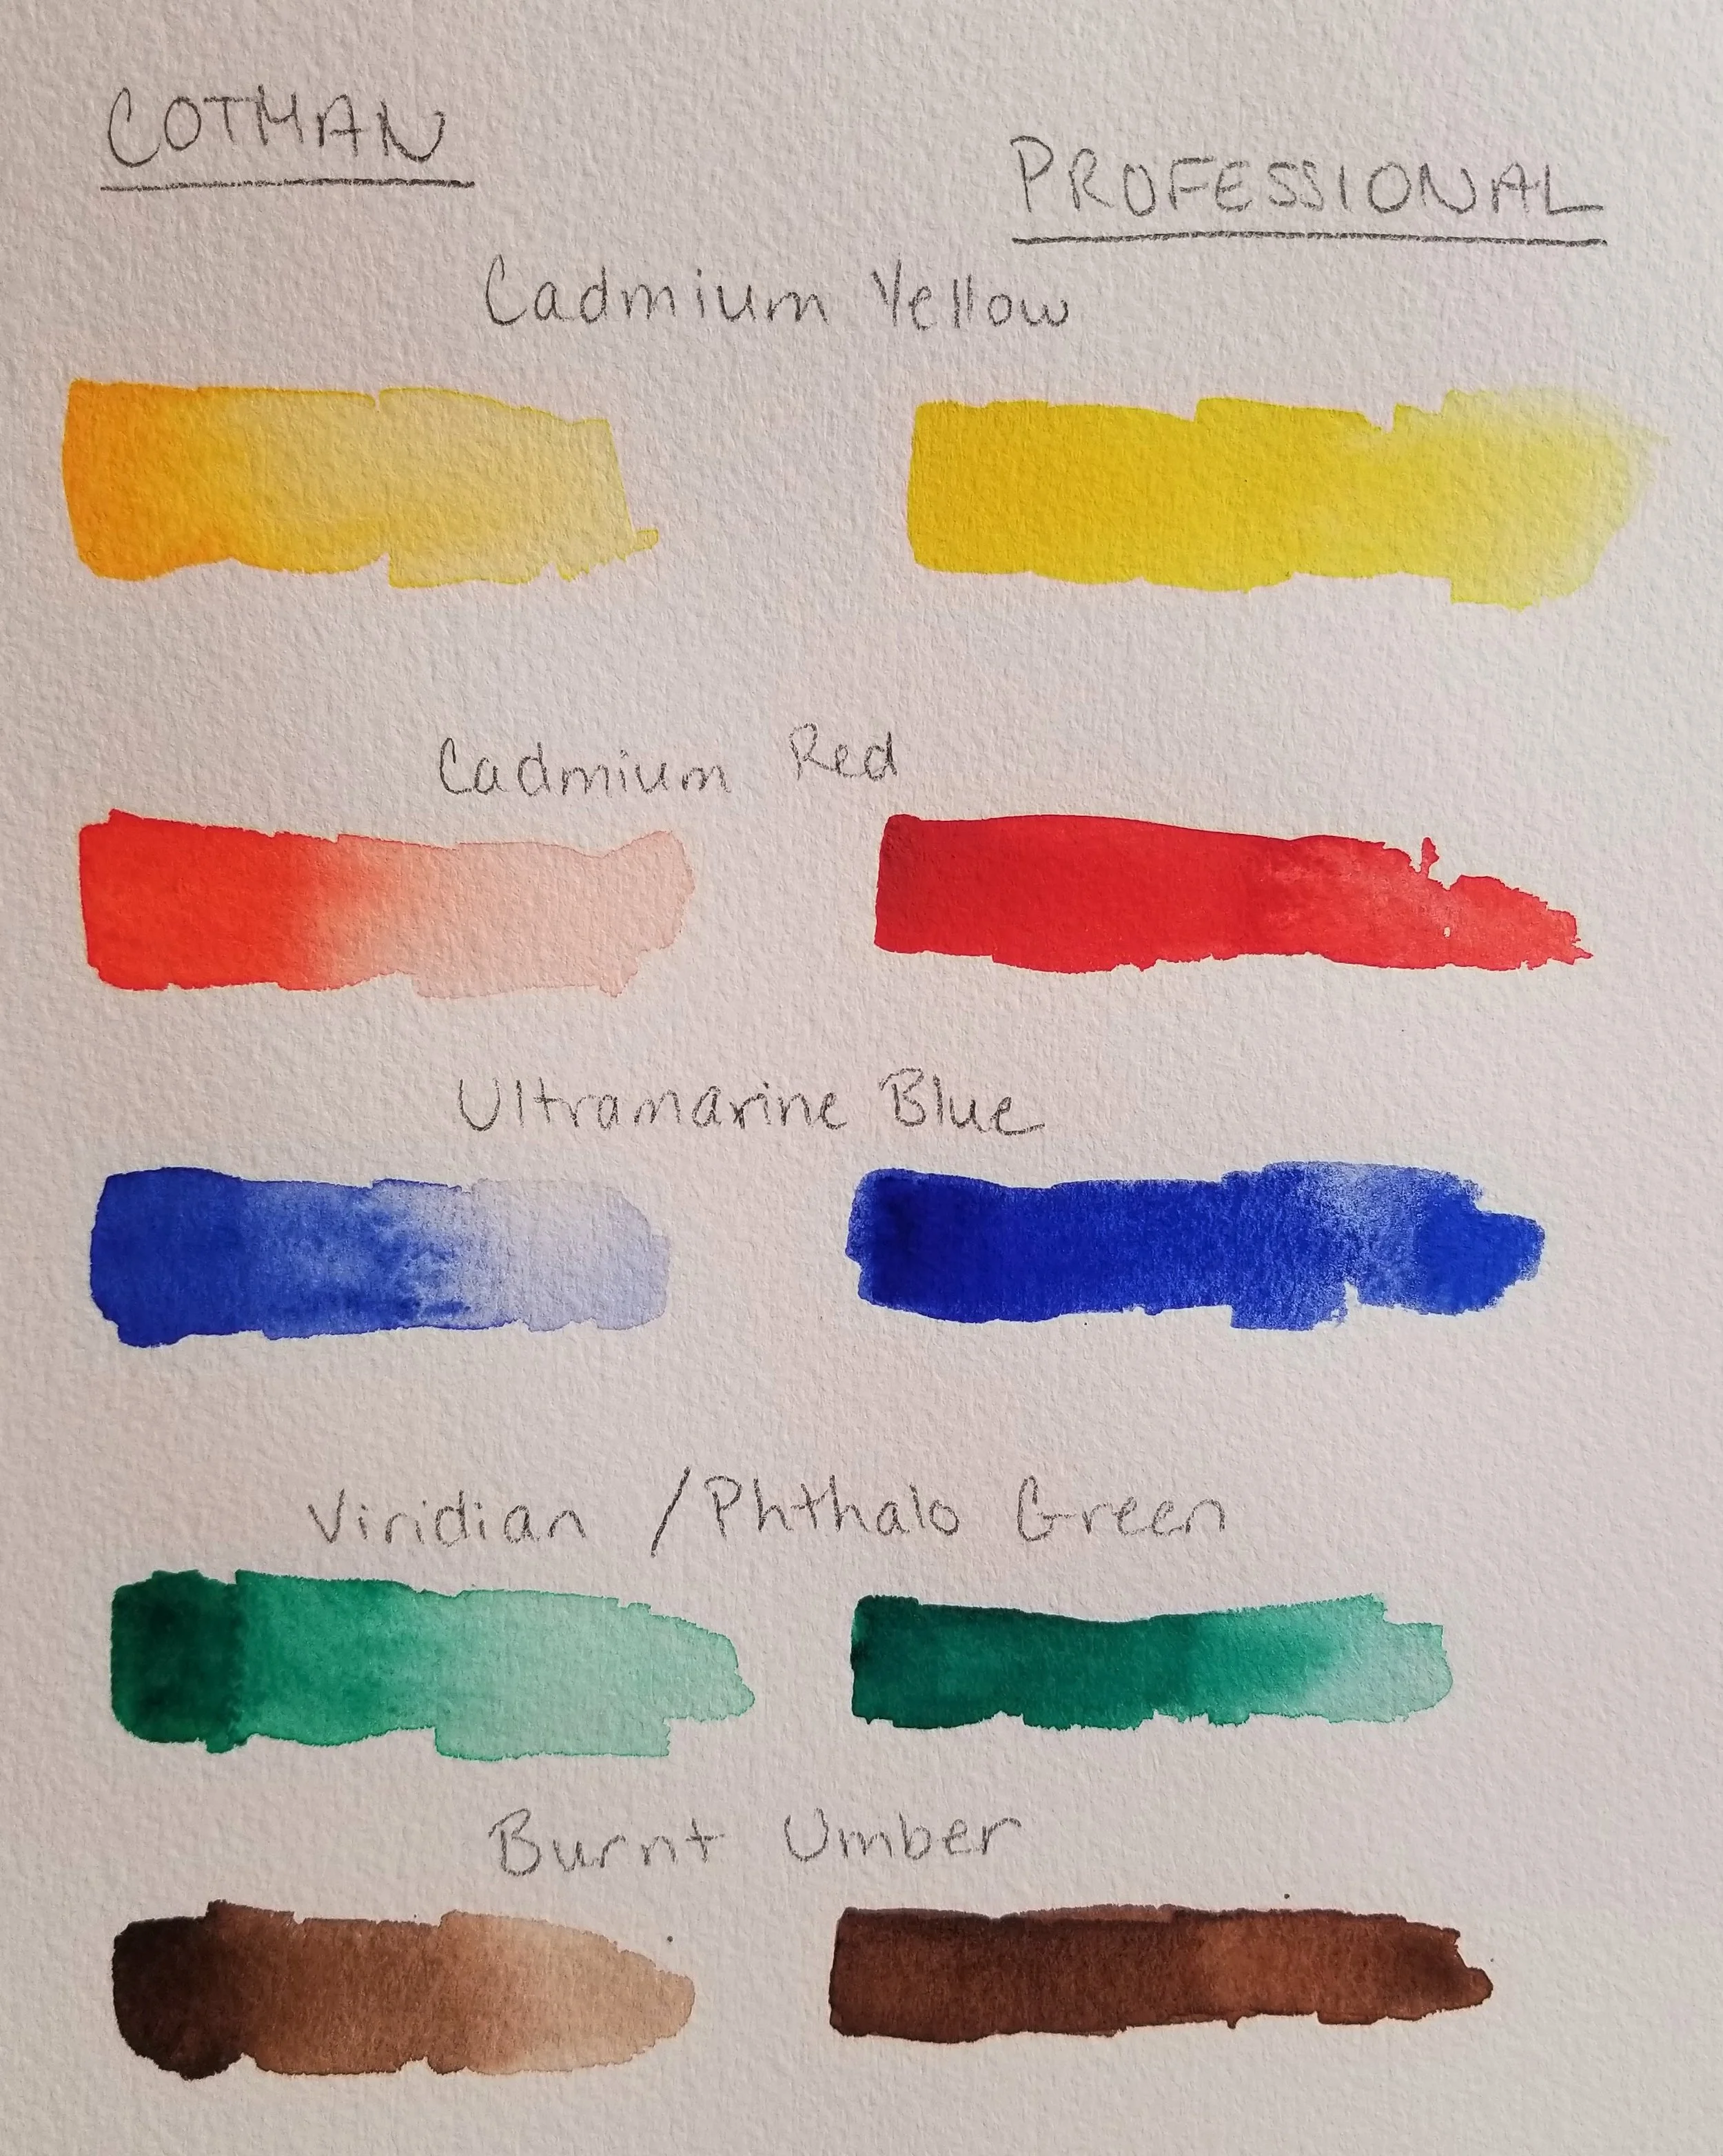 COTMAN
PROFESSIONAL
Cadmium Yellow
Cadmium Red
Ultramarine Blue
Viridian / Phthalo Green
Burnt Umber